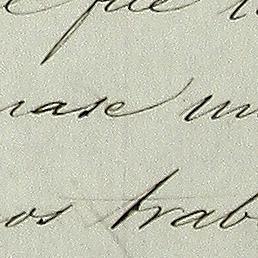 e que l
nase un
os trab